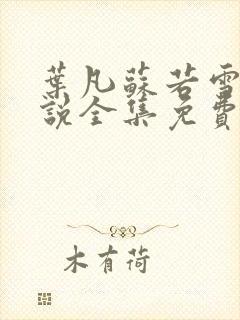 葉凡蘇若雪
說全集免費
木有荷